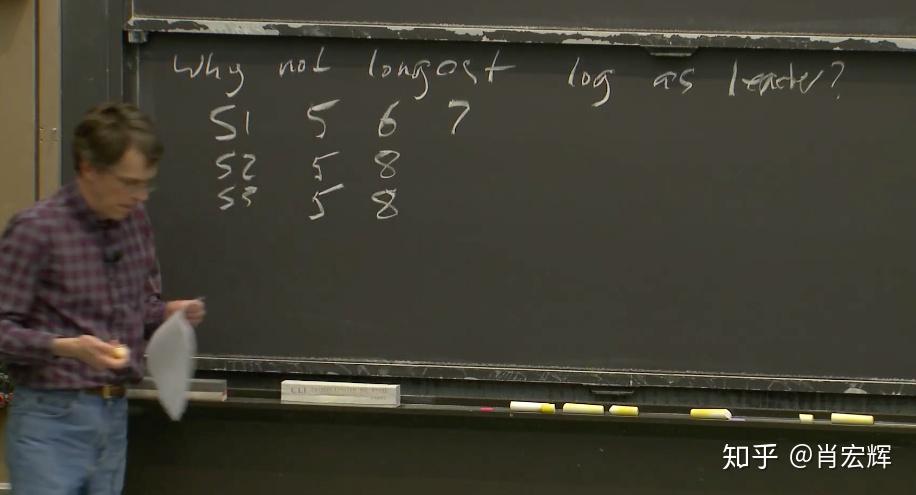 Why not longest log as leader?
S1 5 6 7
S2 5 8
S3 5 8
知乎 @肖宏辉